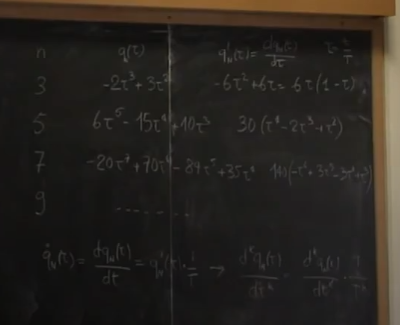 n q(τ) q'ₙ(τ) = dqₙ(τ)/dτ τ = t/T
3 -2τ³ + 3τ² -6τ² + 6τ = 6τ(1-τ)
5 6τ⁵ - 15τ⁴ + 10τ³ 30(τ⁴ - 2τ³ + τ²)
7 -20τ⁷ + 70τ⁶ - 84τ⁵ + 35τ⁴ 140(-τ⁶ + 3τ⁵ - 3τ⁴ + τ³)
9 -------
q̇ₙ(τ) = dqₙ(τ)/dt = q'ₙ(τ) · 1/T → dᵏqₙ(τ)/dtᵏ = dᵏqₙ(τ)/dτᵏ · 1/Tᵏ